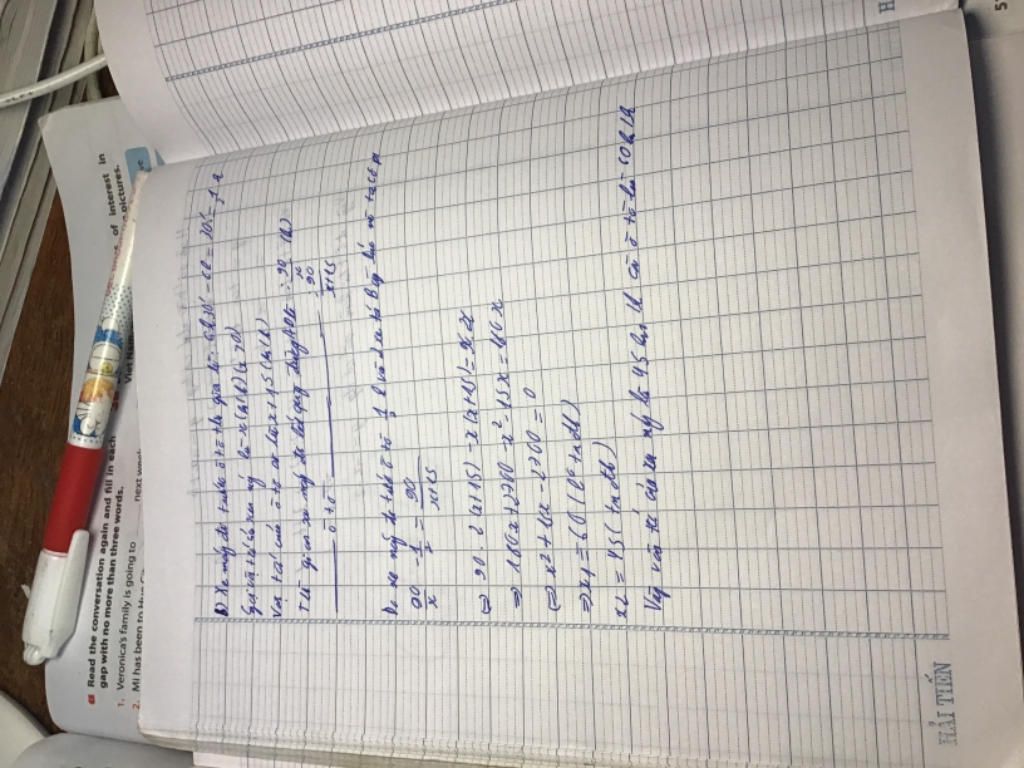 a Read the conversation again and fill in each
gap with no more than three words.
1. Veronica's family is going to
next week
2. Mi has been to
of interest in
pictures.
Viet Nam
b) Xe máy đi trước ô tô thời gian là: 6h30' - 6h = 30' = 1/2 h
Gọi vận tốc của xe máy là x (km/h) (x>0)
Vận tốc của ô tô là x + 15 (km/h)
Thời gian xe máy đi hết quãng đường AB là: 90/x (h)
ô tô 90/x+15
Do xe máy đi trước ô tô 1/2 h và 2 xe đến B cùng lúc nên ta có pt
90/x - 1/2 = 90/x+15
⇔ 90 . 2 (x+15) - x(x+15) =
⇒ 180x + 2700 - x² - 15x = 180x
⇔
⇒ x1 = -60 (
x2 = 45 (
Vậy vận tốc của xe máy là 45 km/h của ô tô là 60 km/h
HẢI TIẾN
H
5